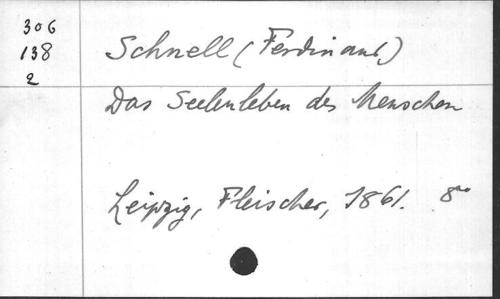 306
138
2
Schnell (Ferdinand)
Das Seelenleben des Menschen
Leipzig, Fleischer, 1861. 8vo